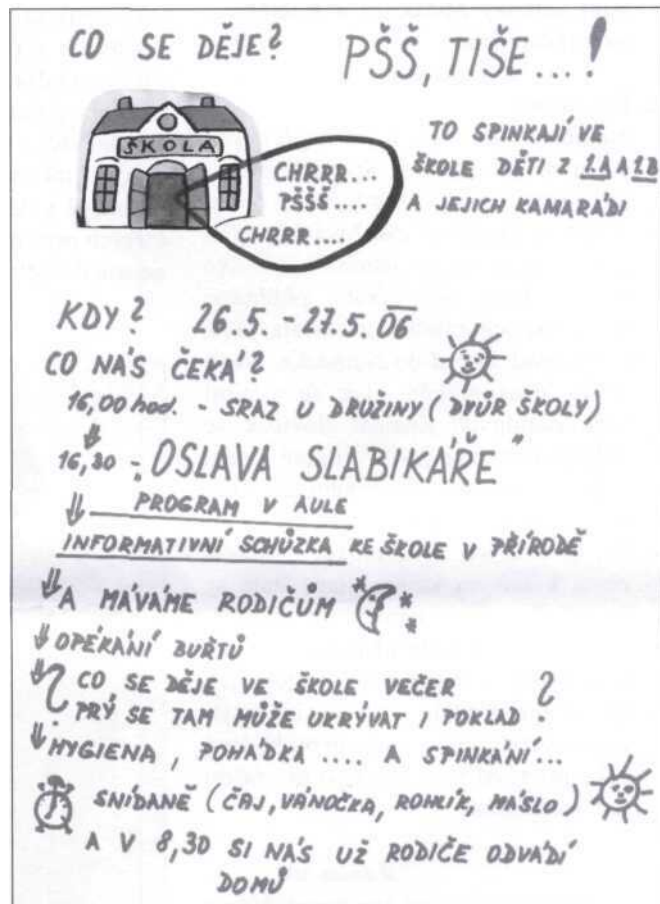 CO SE DĚJE?
PŠŠ, TIŠE...!
ŠKOLA
CHRRR...
PŠŠŠ....
CHRRR....
TO SPINKAJÍ VE
ŠKOLE DĚTI Z 1.A A 1.B
A JEJICH KAMARÁDI
KDY? 26.5. - 27.5. 06
CO NÁS ČEKÁ?
16,00 hod. - SRAZ U DRUŽINY (DVŮR ŠKOLY)
⇓
16,30 - „OSLAVA SLABIKÁŘE"
⇓ PROGRAM V AULE
INFORMATIVNÍ SCHŮZKA KE ŠKOLE V PŘÍRODĚ
⇓ A MÁVÁME RODIČŮM
⇓ OPÉKÁNÍ BUŘTŮ
⇓ ? CO SE DĚJE VE ŠKOLE VEČER ?
PRÝ SE TAM MŮŽE UKRÝVAT I POKLAD
⇓ HYGIENA, POHÁDKA .... A SPINKÁNÍ...
SNÍDANĚ (ČAJ, VÁNOČKA, ROHLÍK, MÁSLO)
A V 8,30 SI NÁS UŽ RODIČE ODVÁDÍ
DOMŮ